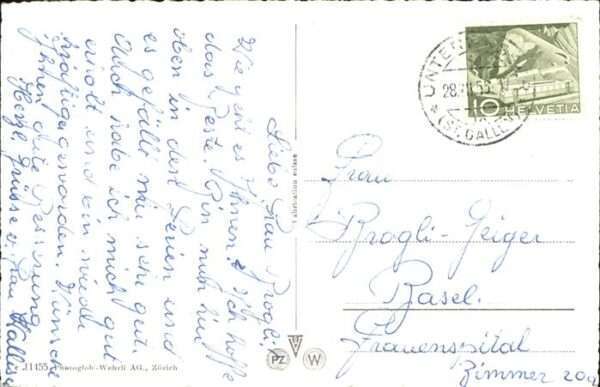 Liebe Frau Brogli.
Wie geht es Ihnen? Ich hoffe
das Beste. Bin nun hier
oben in den Ferien und
es gefällt mir sehr gut.
Auch habe ich mich gut
erholt und bin wieder
kräftig geworden. Wünsche
Ihnen gute Besserung
Herzl. Grüsse v. Frau
Fabrication suisse
11455 Photoglob-Wehrli AG., Zürich
PZ
W
UNTER
28. 55
(ST. GALLEN)
10 HELVETIA
Frau
Brogli-Geiger
Basel.
Frauenspital
Zimmer 209